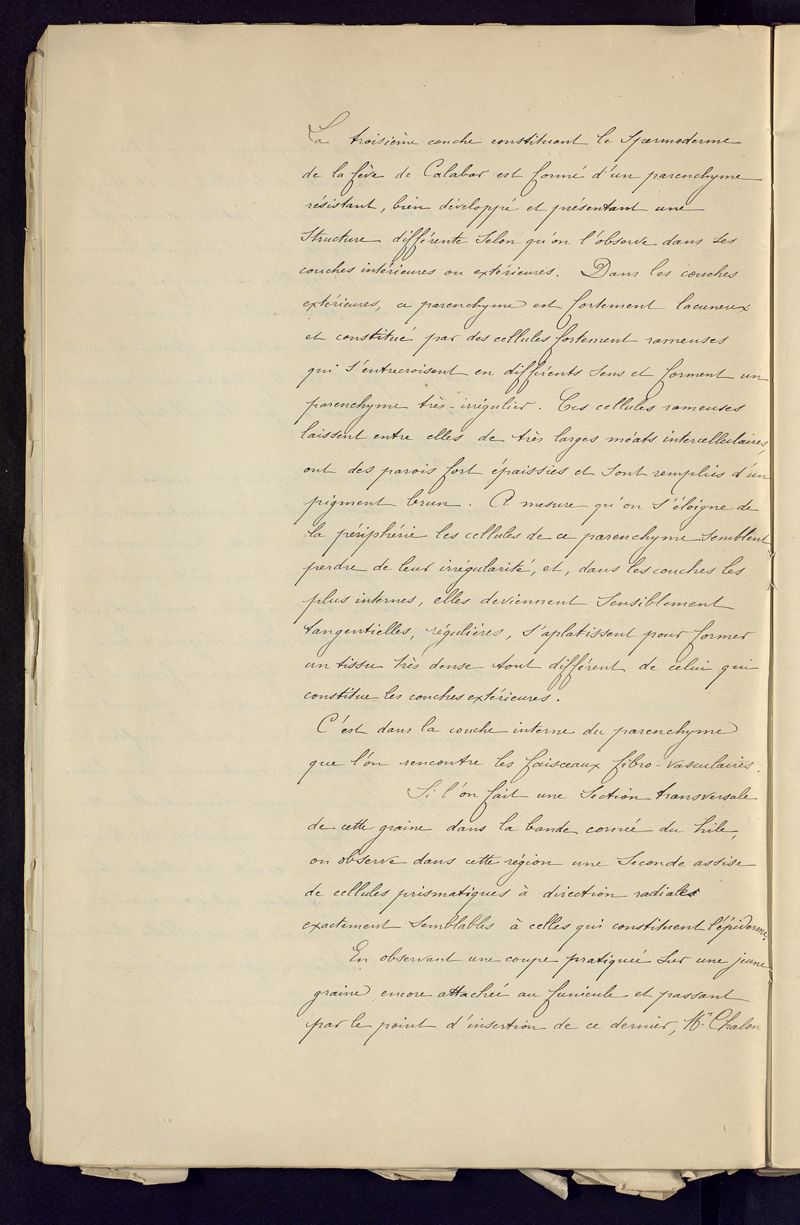 La troisième couche constituant le Spermoderme
de la fève de Calabar est formé d'un parenchyme
résistant, bien développé et présentant une
Structure différente Selon qu'on l'observe dans ses
couches intérieures ou extérieures. Dans les couches
extérieures, ce parenchyme est fortement lacuneux
et constitué par des cellules fortement rameuses
qui S'entrecroisent en différents Sens et forment un
parenchyme très-irrégulier. Ces cellules rameuses
laissent entre elles de très larges méats intercellulaires,
ont des parois fort épaissies et Sont remplies d'un
pigment brun. A mesure qu'on S'éloigne de
la périphérie les cellules de ce parenchyme Semblent
perdre de leur irrégularité, et, dans les couches les
plus internes, elles deviennent Sensiblement
tangentielles, régulières, S'aplatissent pour former
un tissu très dense tout différent de celui qui
constitue les couches extérieures.
C'est dans la couche interne du parenchyme
que l'on rencontre les faisceaux fibro-vasculaires.
Si l'on fait une Section transversale
de cette graine dans la bande cornée du hile,
on observe dans cette région une Seconde assise
de cellules prismatiques à direction radiale
exactement Semblables à celles qui constituent l'épiderme.
En observant une coupe pratiquée Sur une jeune
graine encore attachée au funicule et passant
par le point d'insertion de ce dernier, Mr Chalon